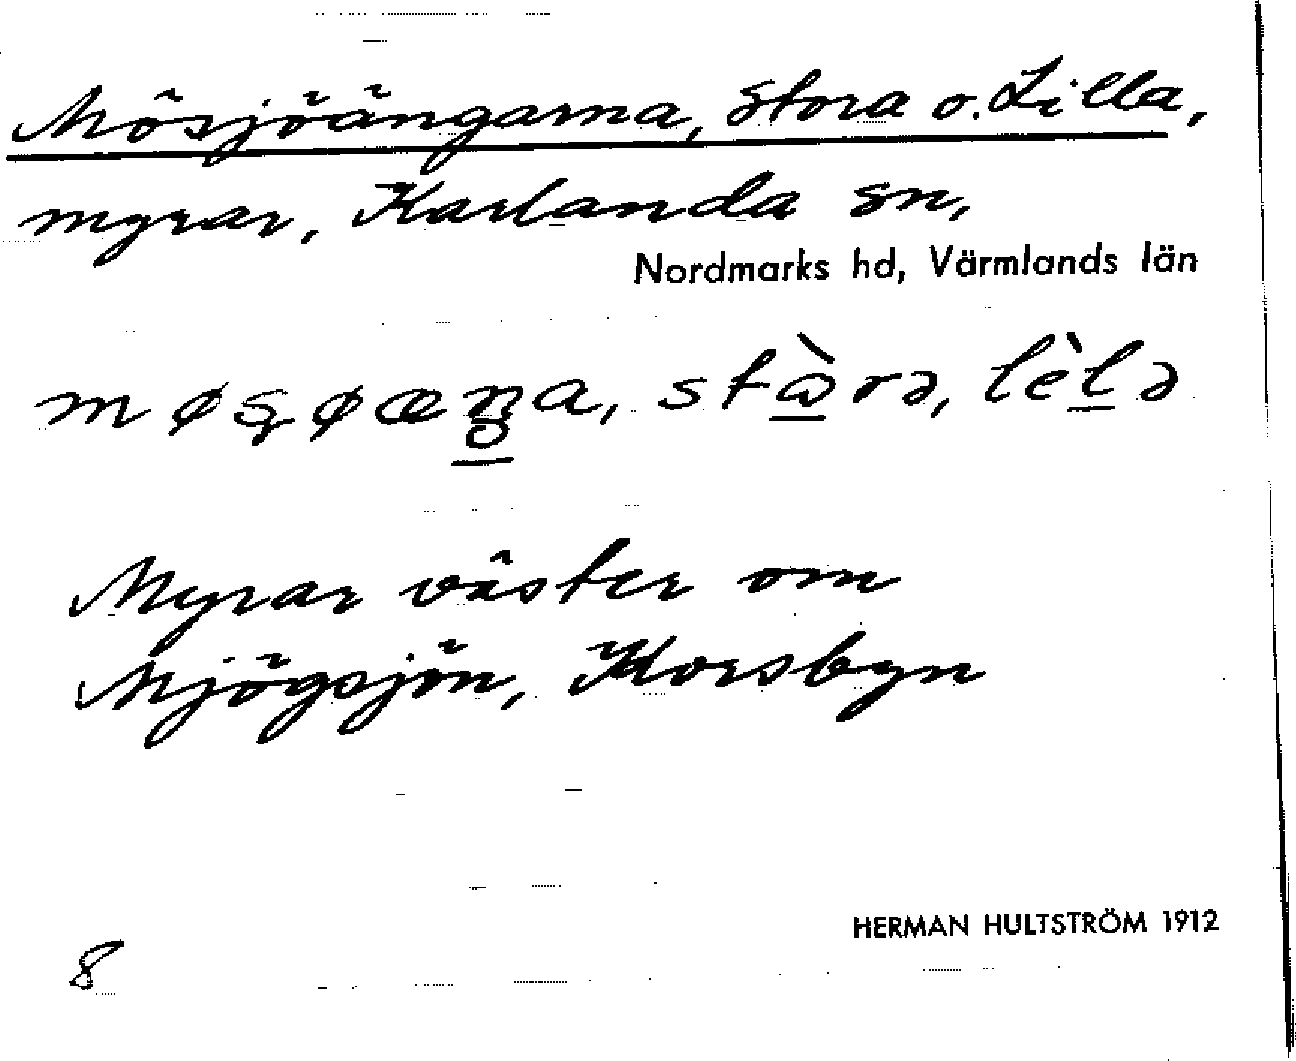 Mösjöängarna, Stora o. Lilla,
myrar, Karlanda sn,
Nordmarks hd, Värmlands län
stɷ̀rə, lèlə
Myrar väster om
Mjögsjön, Korsbyn
HERMAN HULTSTRÖM 1912
8